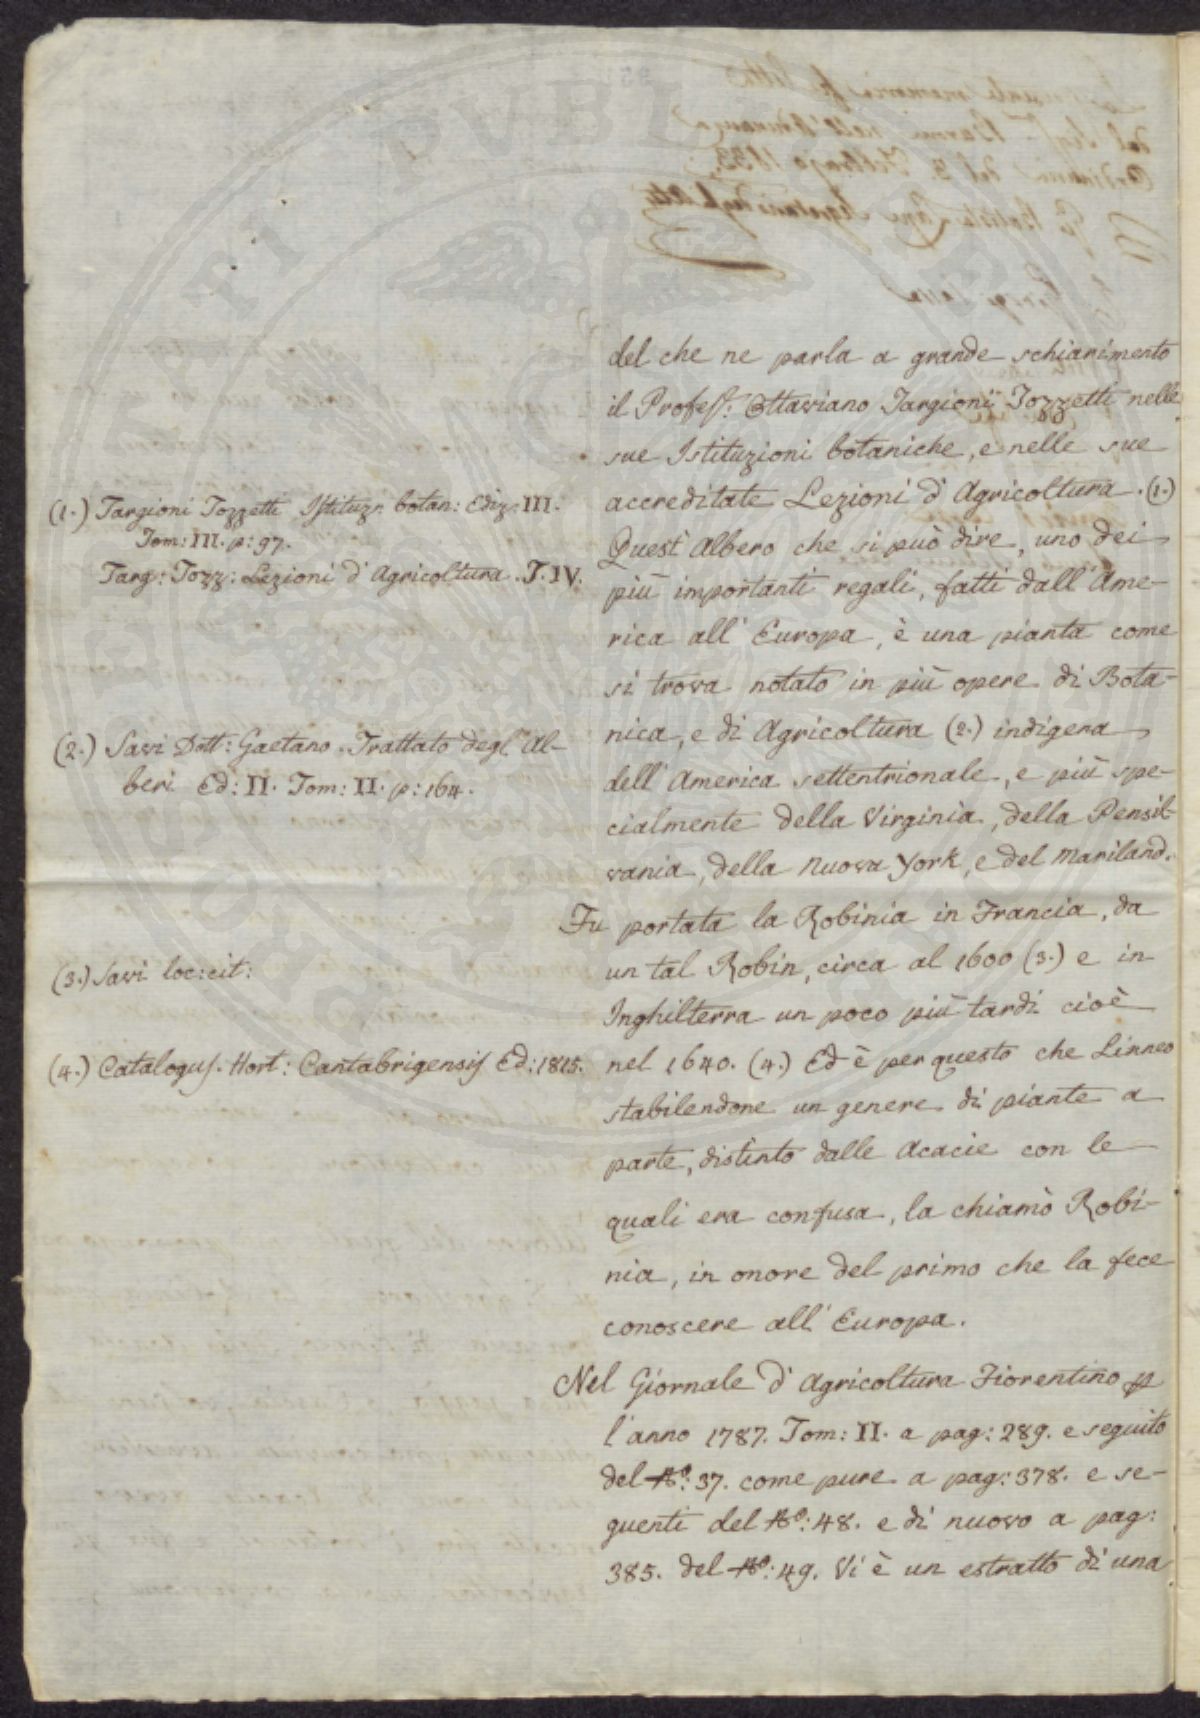 del che ne parla a grande schiarimento
il Profeſs: Ottaviano Targioni Tozzetti nelle
sue Istituzioni botaniche, e nelle sue
accreditate Lezioni d'Agricoltura. (1.)
Quest'Albero che si può dire, uno dei
più importanti regali, fatti dall'Ame-
rica all'Europa, è una pianta come
si trova notato in più opere di Bota-
nica, e di Agricoltura (2.) indigena
dell'America settentrionale, e più spe-
cialmente della Virginia, della Pensil-
vania, della Nuova York, e del Mariland.
Fu portata la Robinia in Francia, da
un tal Robin, circa al 1600 (3.) e in
Inghilterra un poco più tardi cioè
nel 1640. (4.) Ed è per questo che Linneo
stabilendone un genere di piante a
parte, distinto dalle Acacie con le
quali era confusa, la chiamò Robi-
nia, in onore del primo che la fece
conoscere all'Europa.
Nel Giornale d'Agricoltura Fiorentino p
l'anno 1787. Tom: II. a pag: 289. e seguito
del No: 37. come pure a pag: 378. e se-
guenti del No: 48. e di nuovo a pag:
385. del No: 49. Vi è un estratto di una
(1.) Targioni Tozzetti Iſtituzn botan: Ediz: III.
Tom: III. p: 97.
Targ: Tozz: Lezioni d'Agricoltura. T. IV.
(2.) Savi Dott: Gaetano. Trattato degl'Al-
beri Ed: II. Tom: II. p: 164.
(3.) Savi loc: cit:
(4.) Catalogus. Hort: Cantabrigensis Ed: 1815.